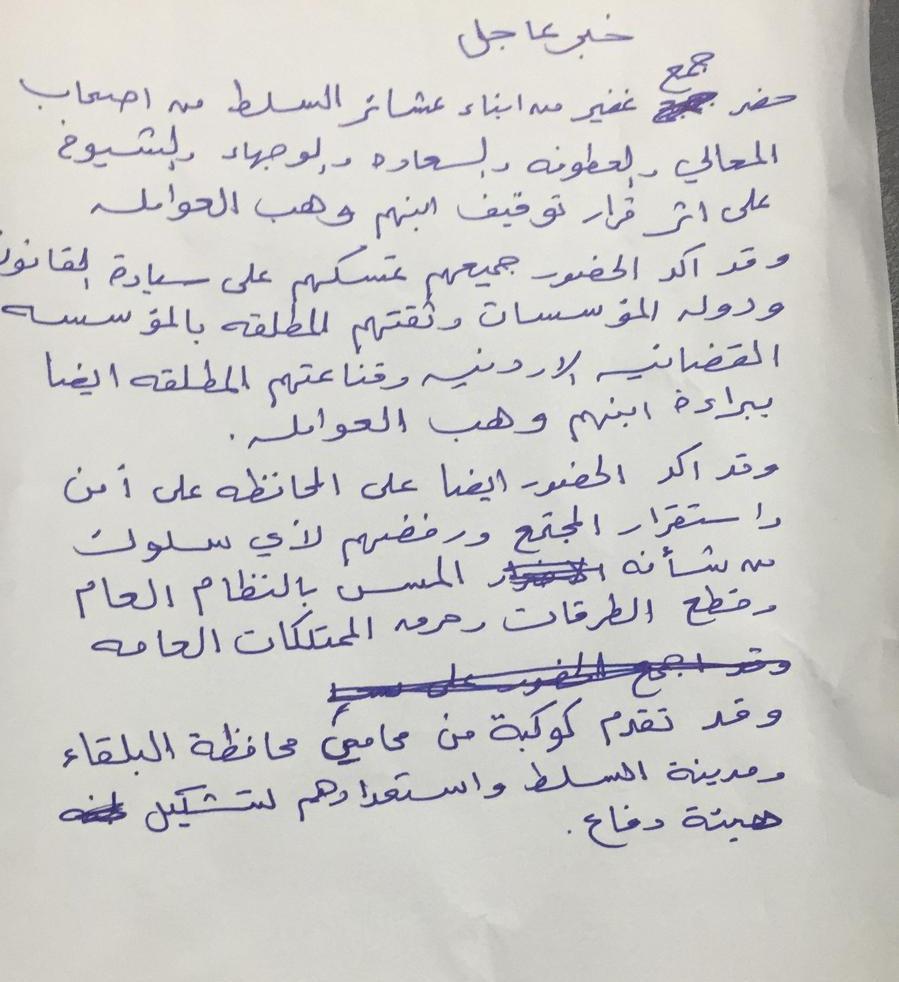 خبر عاجل
حضر جمع غفير من ابناء عشائر السلط من اصحاب
المعالي والعطوفه والسعاده والوجهاء والشيوخ
على اثر قرار توقيف ابنهم وهب العوامله
وقد اكد الحضور جميعهم تمسكهم على سيادة القانون
ودوله المؤسسات وثقتهم المطلقه بالمؤسسه
القضائيه الاردنيه وقناعتهم المطلقه ايضا
ببراءة ابنهم وهب العوامله .
وقد اكد الحضور ايضا على المحافظه على أمن
واستقرار المجتمع ورفضهم لأي سلوك
من شأنه المس بالنظام العام
وقطع الطرقات وحرق الممتلكات العامه
وقد اجمع الحضور على
وقد تقدم كوكبة من محاميي محافظة البلقاء
ومدينة السلط واستعدادهم لتشكيل
هيئة دفاع .